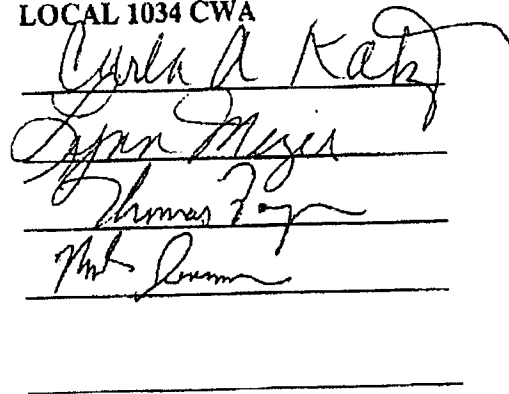 LOCAL 1034 CWA
Carla A Katz
Lynn Meyer
Thomas